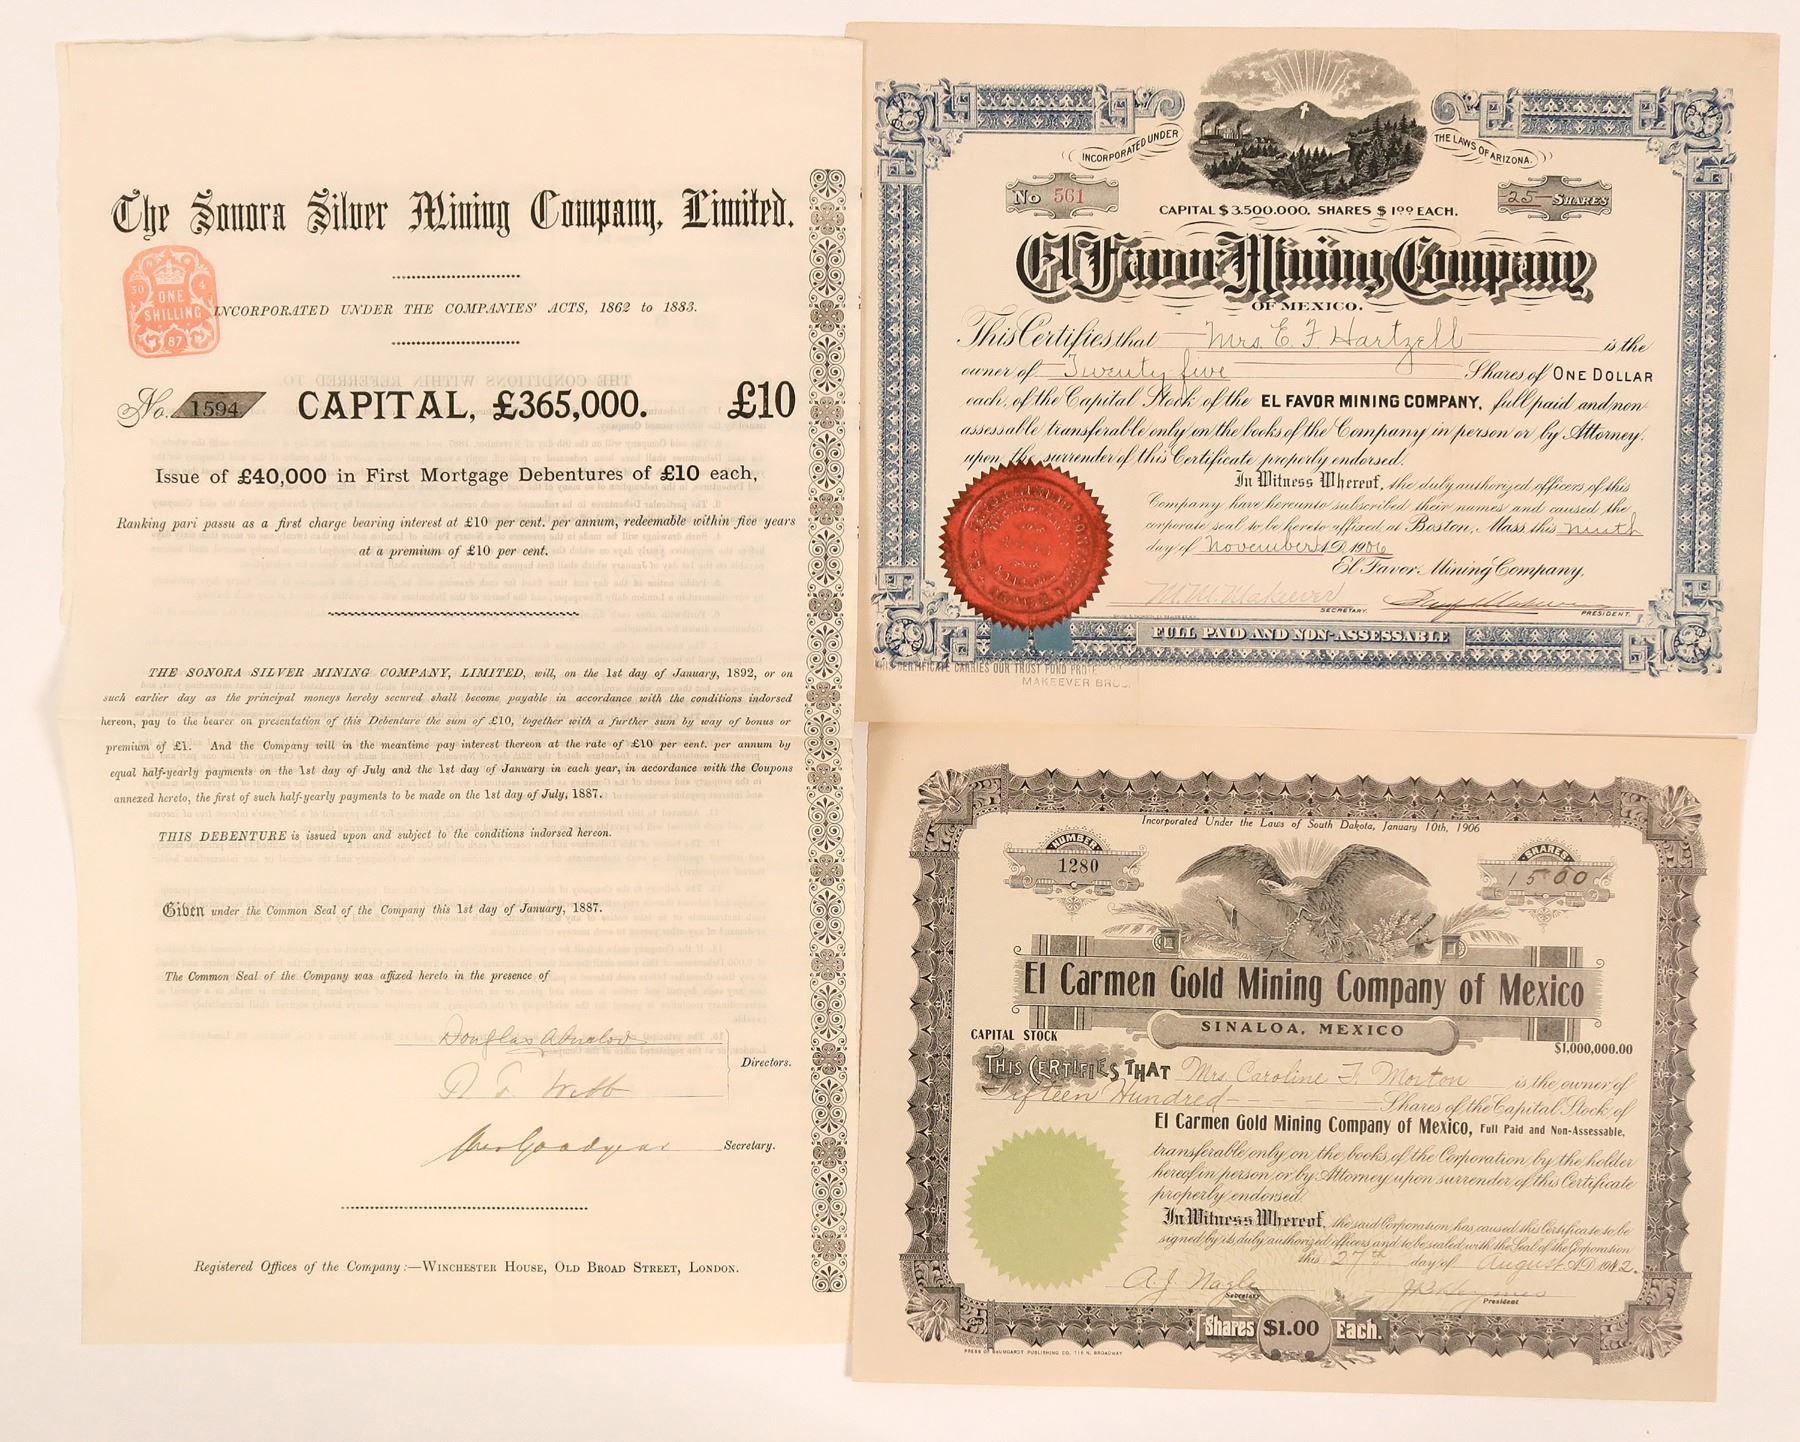 The Sonora Silver Mining Company, Limited.
ONE
SHILLING
30
4
87
INCORPORATED UNDER THE COMPANIES' ACTS, 1862 to 1883.
No. 1594 CAPITAL, £365,000. £10
Issue of £40,000 in First Mortgage Debentures of £10 each,
Ranking pari passu as a first charge bearing interest at £10 per cent. per annum, redeemable within five years
at a premium of £10 per cent.
THE SONORA SILVER MINING COMPANY, LIMITED, will, on the 1st day of January, 1892, or on
such earlier day as the principal moneys hereby secured shall become payable in accordance with the conditions indorsed
hereon, pay to the bearer on presentation of this Debenture the sum of £10, together with a further sum by way of bonus or
premium of £1. And the Company will in the meantime pay interest thereon at the rate of £10 per cent. per annum by
equal half-yearly payments on the 1st day of July and the 1st day of January in each year, in accordance with the Coupons
annexed hereto, the first of such half-yearly payments to be made on the 1st day of July, 1887.
THIS DEBENTURE is issued upon and subject to the conditions indorsed hereon.
Given under the Common Seal of the Company this 1st day of January, 1887.
The Common Seal of the Company was affixed hereto in the presence of
Douglas
Directors.
Webb
Goodyear Secretary.
Registered Offices of the Company:—WINCHESTER HOUSE, OLD BROAD STREET, LONDON.
INCORPORATED UNDER THE LAWS OF ARIZONA.
No 561
25 SHARES
CAPITAL $3,500.000. SHARES $1.00 EACH.
El Favor Mining Company
OF MEXICO.
This Certifies that Mrs. E F Hartzell is the
owner of Twenty five Shares of ONE DOLLAR
each, of the Capital Stock of the EL FAVOR MINING COMPANY, full paid and non
assessable transferable only on the books of the Company in person or by Attorney,
upon the surrender of this Certificate properly endorsed.
In Witness Whereof, the duly authorized officers of this
Company have hereunto subscribed their names and caused the
corporate seal to be hereto affixed at Boston, Mass. this ninth
day of November A.D. 1906
El Favor Mining Company,
M. M. Makeever SECRETARY.
PRESIDENT.
FULL PAID AND NON-ASSESSABLE
CERTIFICATE CARRIES OUR TRUST FUND
MAKEEVER BROS.
Incorporated Under the Laws of South Dakota, January 10th, 1906
NUMBER
1280
SHARES
1500
El Carmen Gold Mining Company of Mexico
SINALOA, MEXICO
CAPITAL STOCK
$1,000,000.00
THIS CERTIFIES THAT Mrs. Caroline F. Morton is the owner of
Fifteen Hundred Shares of the Capital Stock of
El Carmen Gold Mining Company of Mexico, Full Paid and Non-Assessable,
transferable only on the books of the Corporation by the holder
hereof in person or by Attorney upon surrender of this Certificate
properly endorsed.
In Witness Whereof, the said Corporation has caused this Certificate to be
signed by its duly authorized officers and to be sealed with the Seal of the Corporation
this 27th day of August A.D. 1912.
A. J. Nagle
Secretary
President
Shares $1.00 Each.
PRESS OF BAUMGARDT PUBLISHING CO. 116 N. BROADWAY